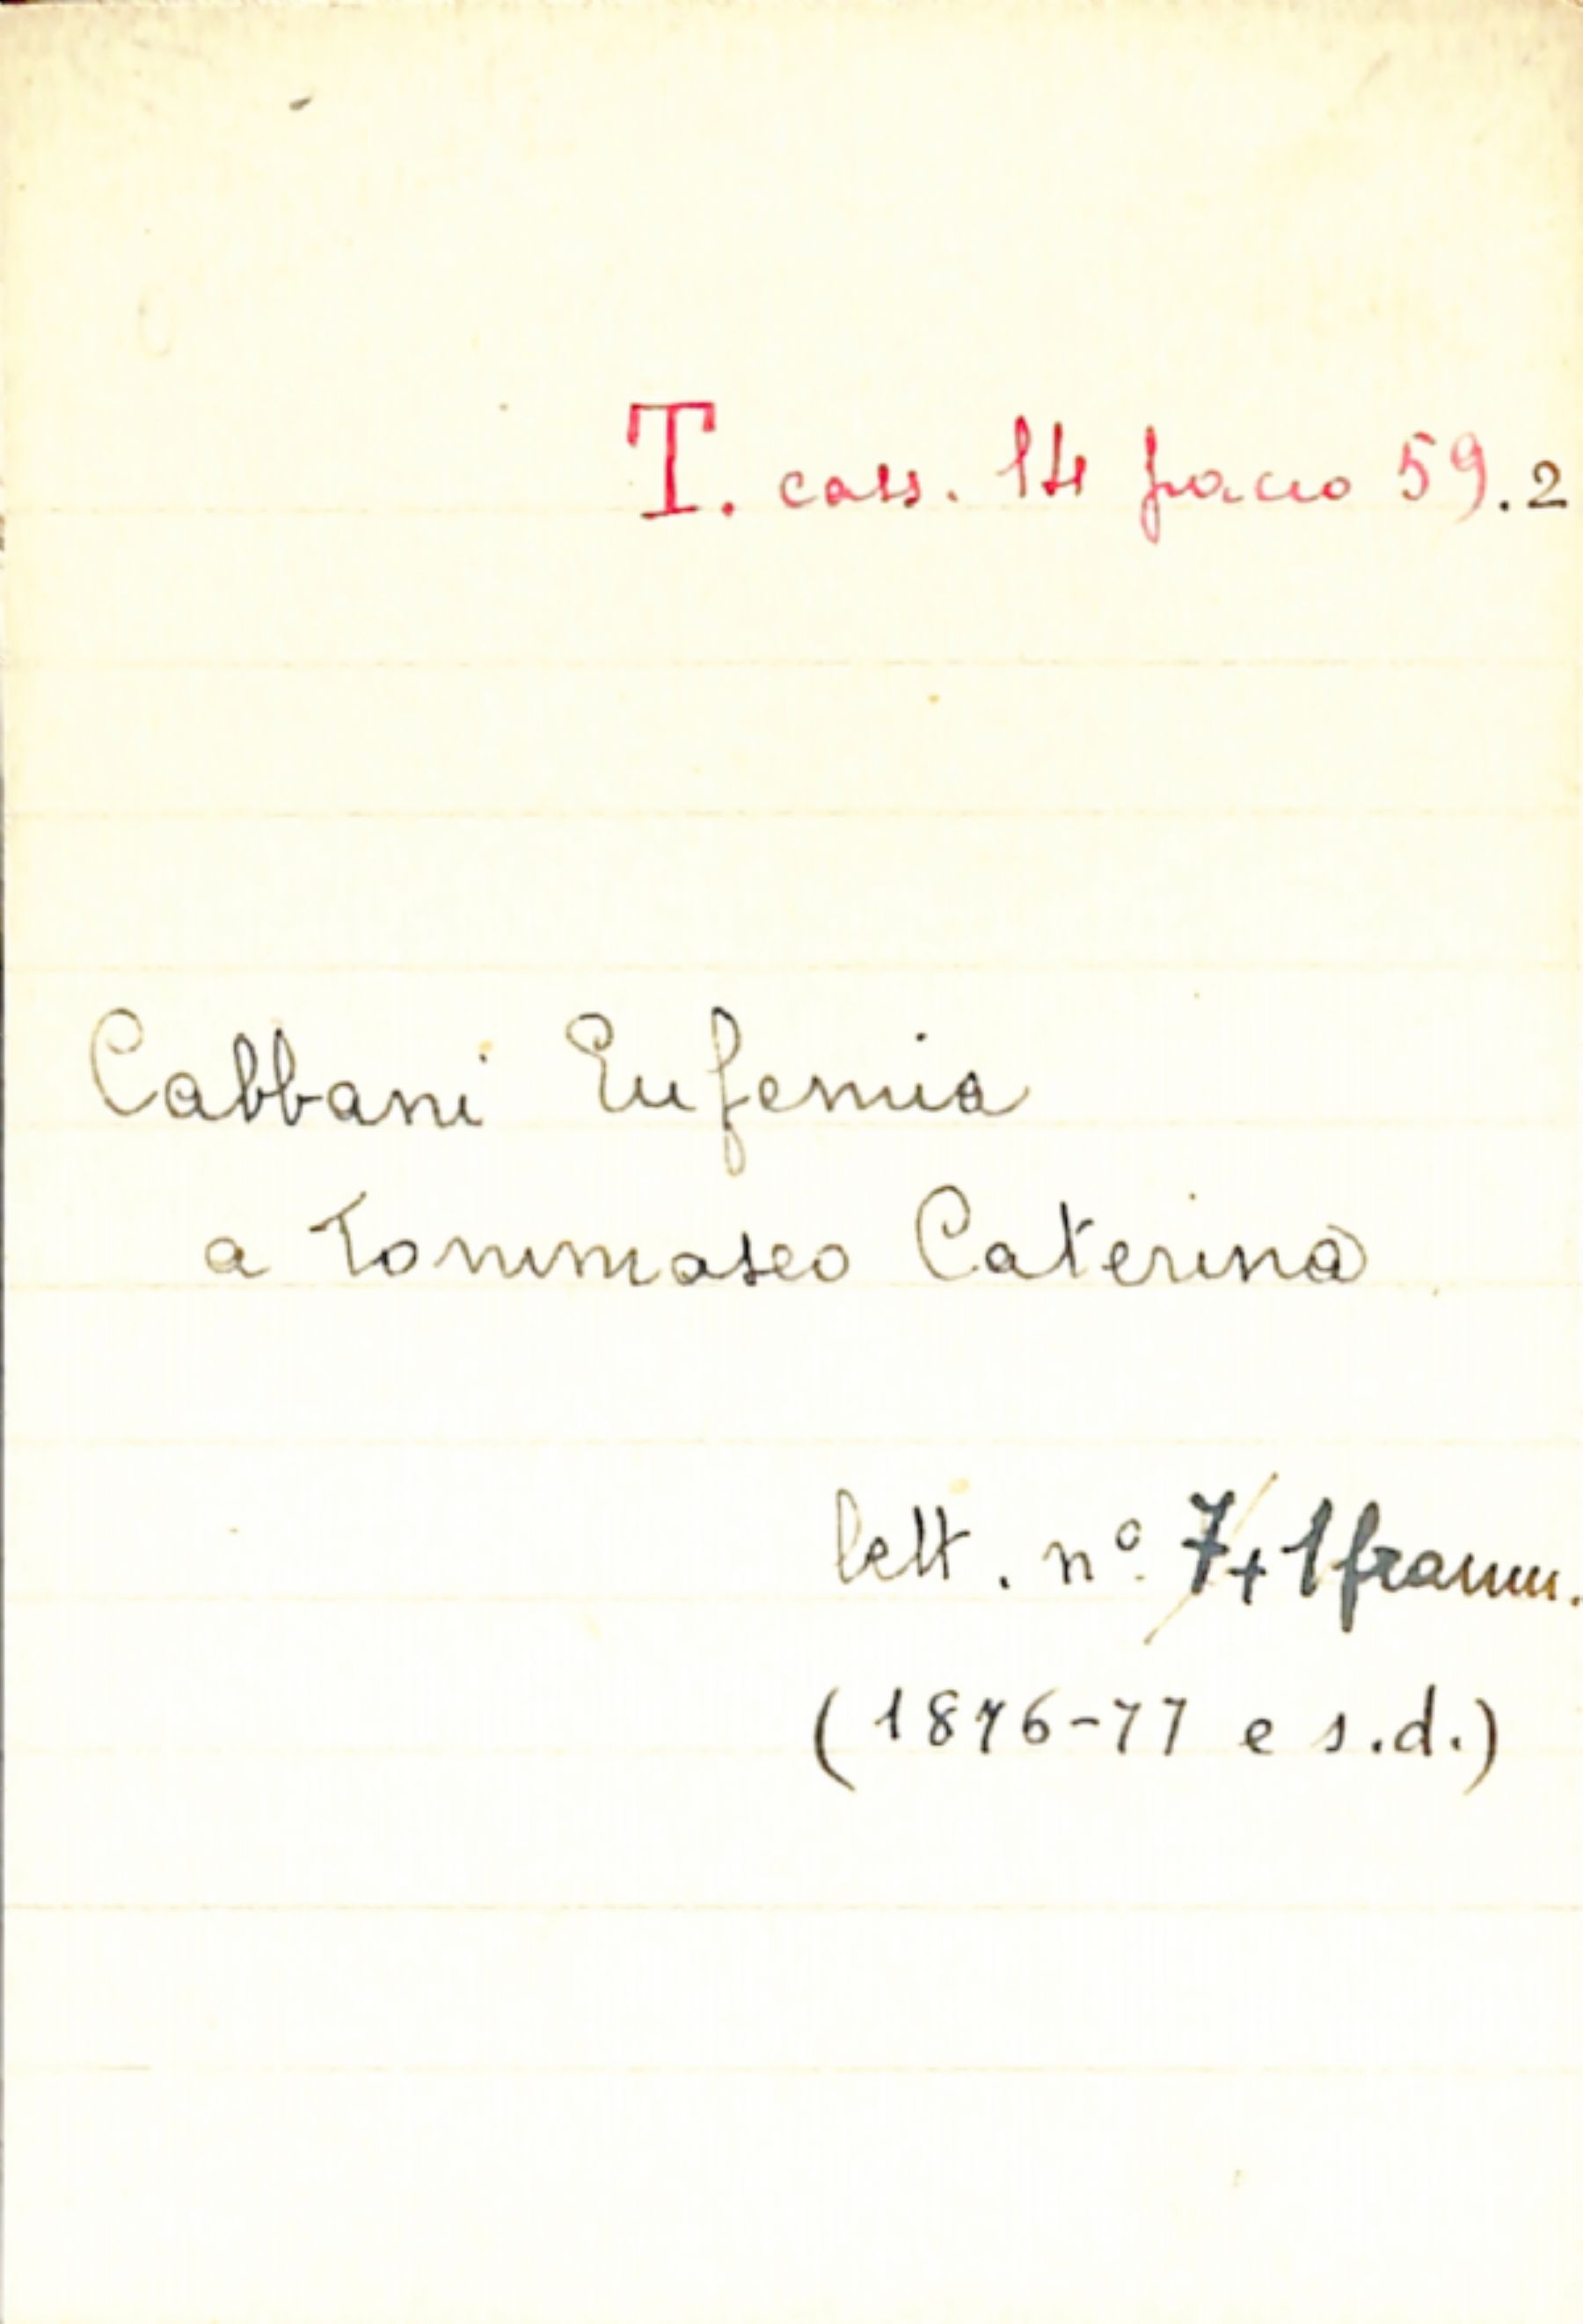 T. cass. 14 fascio 59.2
Cabbani Eufemia
a Tommaseo Caterina
lett. n° 7+1framm.
(1876-77 e s.d.)